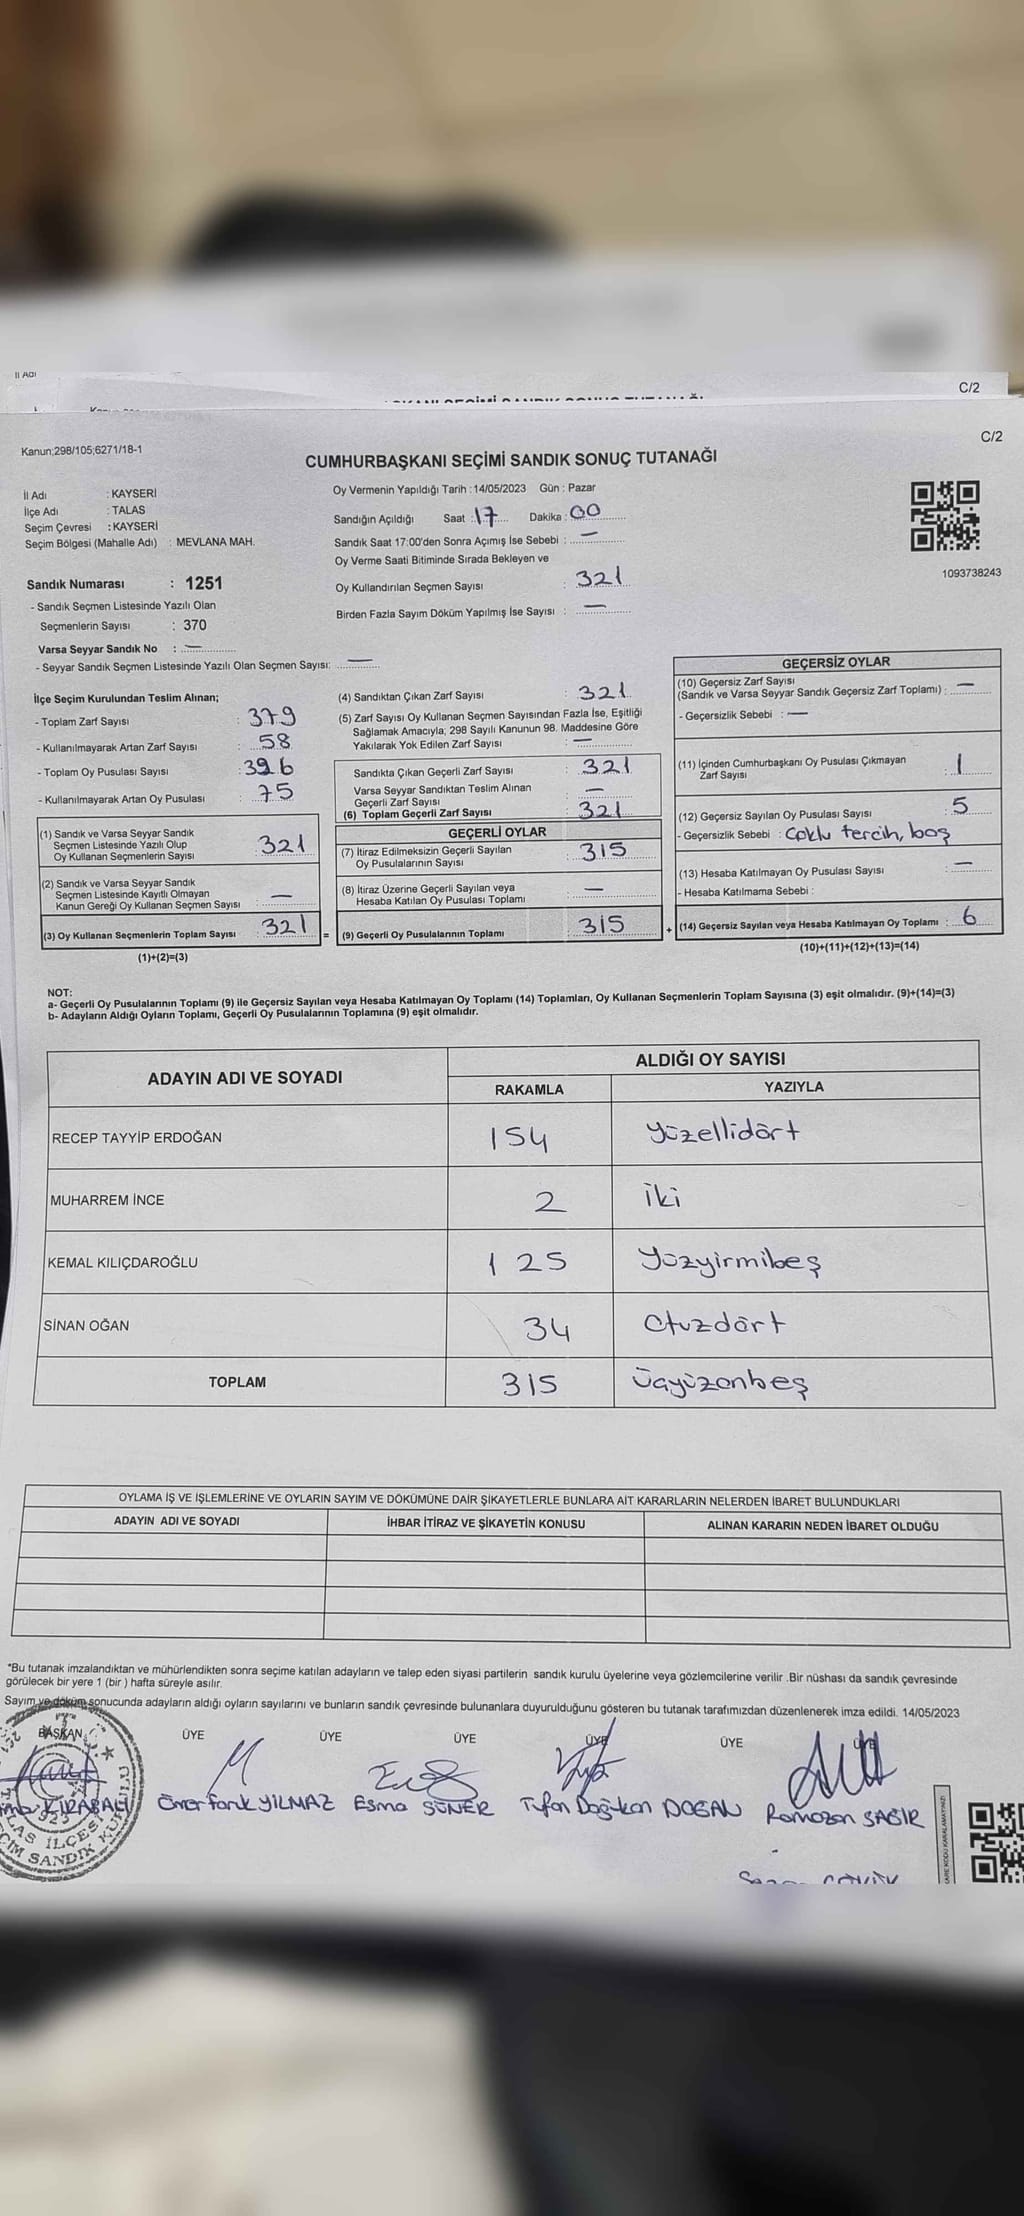 İl Adı
C/2
C/2
Kanun;298/105;6271/18-1
CUMHURBAŞKANI SEÇİMİ SANDIK SONUÇ TUTANAĞI
İl Adı : KAYSERİ
İlçe Adı : TALAS
Seçim Çevresi : KAYSERİ
Seçim Bölgesi (Mahalle Adı) : MEVLANA MAH.
Oy Vermenin Yapıldığı Tarih : 14/05/2023 Gün : Pazar
Sandığın Açıldığı Saat : 17 Dakika : 00
Sandık Saat 17:00'den Sonra Açımış İse Sebebi : —
Oy Verme Saati Bitiminde Sırada Bekleyen ve
Oy Kullandırılan Seçmen Sayısı : 321
Birden Fazla Sayım Döküm Yapılmış İse Sayısı : —
1093738243
Sandık Numarası : 1251
- Sandık Seçmen Listesinde Yazılı Olan
Seçmenlerin Sayısı : 370
Varsa Seyyar Sandık No : —
- Seyyar Sandık Seçmen Listesinde Yazılı Olan Seçmen Sayısı: —
İlçe Seçim Kurulundan Teslim Alınan;
- Toplam Zarf Sayısı : 379
- Kullanılmayarak Artan Zarf Sayısı : 58
- Toplam Oy Pusulası Sayısı : 396
- Kullanılmayarak Artan Oy Pusulası : 75
(1) Sandık ve Varsa Seyyar Sandık
Seçmen Listesinde Yazılı Olup
Oy Kullanan Seçmenlerin Sayısı : 321
(2) Sandık ve Varsa Seyyar Sandık
Seçmen Listesinde Kayıtlı Olmayan
Kanun Gereği Oy Kullanan Seçmen Sayısı : —
(3) Oy Kullanan Seçmenlerin Toplam Sayısı : 321 =
(1)+(2)=(3)
(4) Sandıktan Çıkan Zarf Sayısı : 321
(5) Zarf Sayısı Oy Kullanan Seçmen Sayısından Fazla İse, Eşitliği
Sağlamak Amacıyla; 298 Sayılı Kanunun 98. Maddesine Göre
Yakılarak Yok Edilen Zarf Sayısı : —
Sandıkta Çıkan Geçerli Zarf Sayısı : 321
Varsa Seyyar Sandıktan Teslim Alınan
Geçerli Zarf Sayısı : —
(6) Toplam Geçerli Zarf Sayısı : 321
GEÇERLİ OYLAR
(7) İtiraz Edilmeksizin Geçerli Sayılan
Oy Pusulalarının Sayısı : 315
(8) İtiraz Üzerine Geçerli Sayılan veya
Hesaba Katılan Oy Pusulası Toplamı : —
(9) Geçerli Oy Pusulalarının Toplamı : 315 +
GEÇERSİZ OYLAR
(10) Geçersiz Zarf Sayısı
(Sandık ve Varsa Seyyar Sandık Geçersiz Zarf Toplamı) : —
- Geçersizlik Sebebi : —
(11) İçinden Cumhurbaşkanı Oy Pusulası Çıkmayan
Zarf Sayısı : 1
(12) Geçersiz Sayılan Oy Pusulası Sayısı : 5
- Geçersizlik Sebebi : Çoklu tercih, boş
(13) Hesaba Katılmayan Oy Pusulası Sayısı : —
- Hesaba Katılmama Sebebi :
(14) Geçersiz Sayılan veya Hesaba Katılmayan Oy Toplamı : 6
(10)+(11)+(12)+(13)=(14)
NOT:
a- Geçerli Oy Pusulalarının Toplamı (9) ile Geçersiz Sayılan veya Hesaba Katılmayan Oy Toplamı (14) Toplamları, Oy Kullanan Seçmenlerin Toplam Sayısına (3) eşit olmalıdır. (9)+(14)=(3)
b- Adayların Aldığı Oyların Toplamı, Geçerli Oy Pusulalarının Toplamına (9) eşit olmalıdır.
ADAYIN ADI VE SOYADI ALDIĞI OY SAYISI
RAKAMLA YAZIYLA
RECEP TAYYİP ERDOĞAN 154 yüzellidört
MUHARREM İNCE 2 iki
KEMAL KILIÇDAROĞLU 125 yüzyirmibeş
SİNAN OĞAN 34 Otuzdört
TOPLAM 315 üçyüzonbeş
OYLAMA İŞ VE İŞLEMLERİNE VE OYLARIN SAYIM VE DÖKÜMÜNE DAİR ŞİKAYETLERLE BUNLARA AİT KARARLARIN NELERDEN İBARET BULUNDUKLARI
ADAYIN ADI VE SOYADI İHBAR İTİRAZ VE ŞİKAYETİN KONUSU ALINAN KARARIN NEDEN İBARET OLDUĞU
*Bu tutanak imzalandıktan ve mühürlendikten sonra seçime katılan adayların ve talep eden siyasi partilerin sandık kurulu üyelerine veya gözlemcilerine verilir .Bir nüshası da sandık çevresinde
görülecek bir yere 1 (bir ) hafta süreyle asılır.
Sayım ve döküm sonucunda adayların aldığı oyların sayılarını ve bunların sandık çevresinde bulunanlara duyurulduğunu gösteren bu tutanak tarafımızdan düzenlenerek imza edildi. 14/05/2023
BAŞKAN ÜYE ÜYE ÜYE ÜYE ÜYE ÜYE
Ömer faruk YILMAZ Esma SÜNER Tufan Doğukan DOĞAN Ramazan SAĞIR